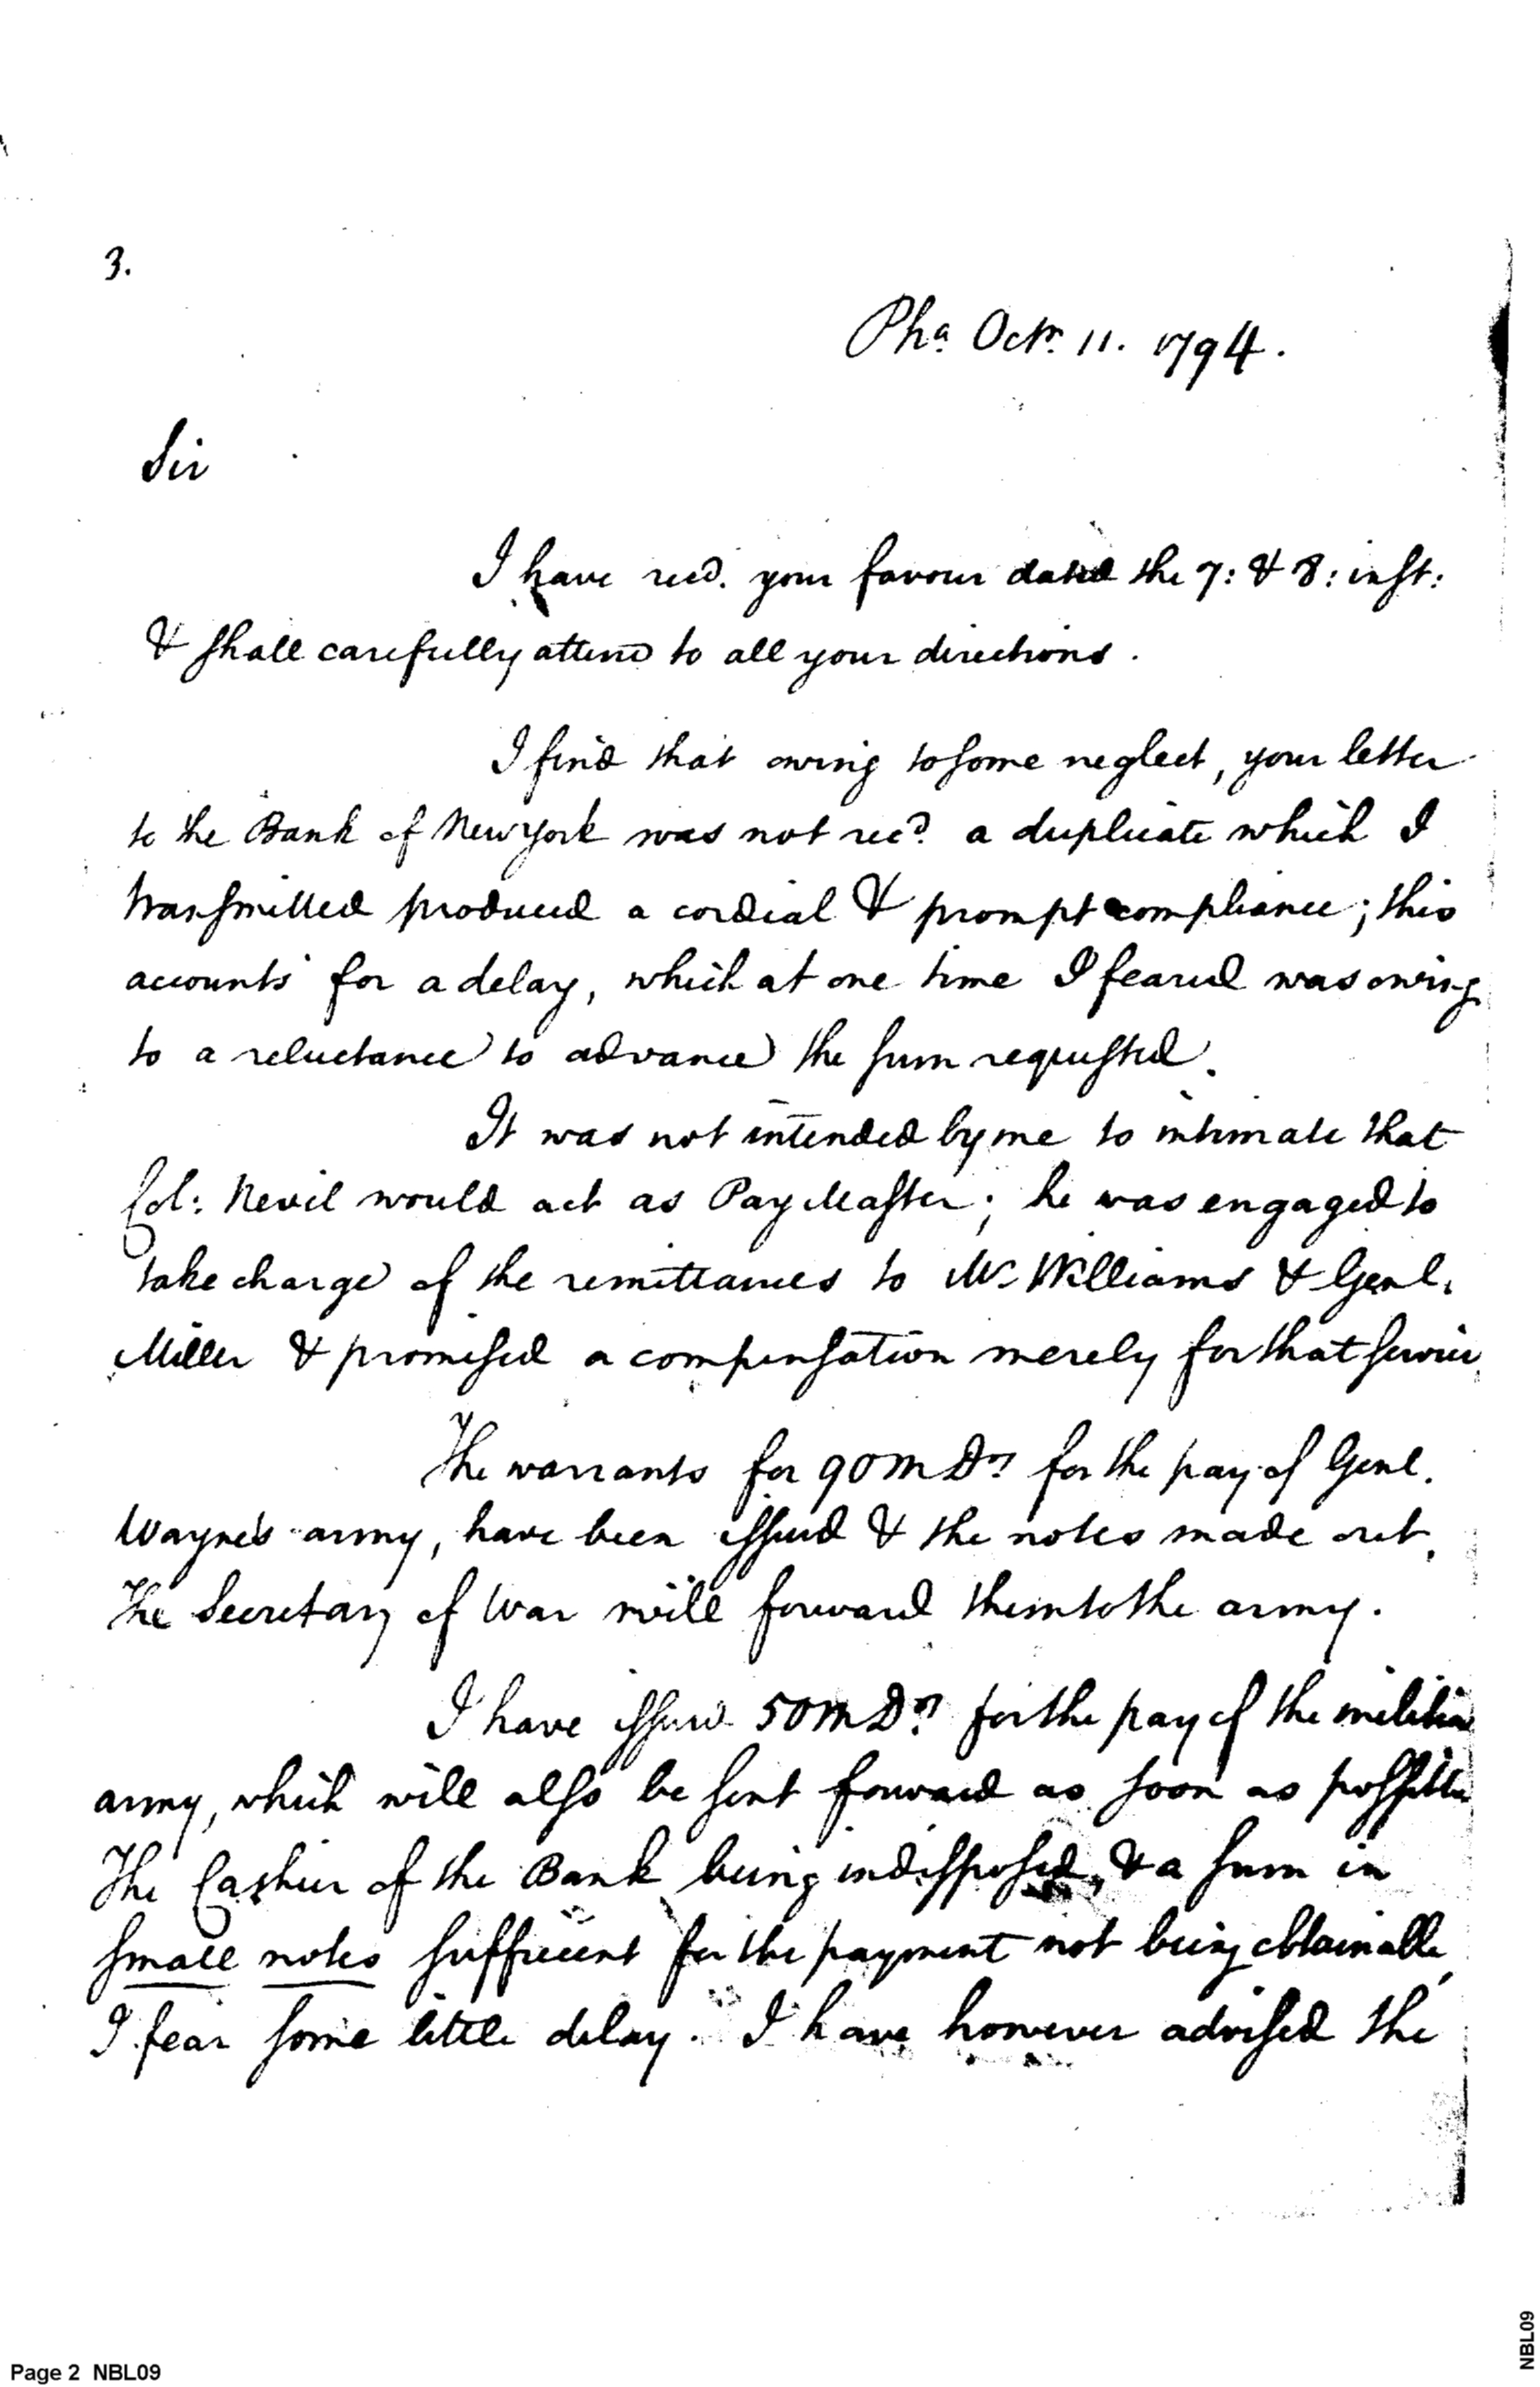 3.
Pha. Octr. 11. 1794.
Sir
I have recd. your favour dated the 7: & 8: inst:
& shall carefully attend to all your directions.
I find that owing to some neglect, your letter
to the Bank of New York was not recd. a duplicate which I
transmitted produced a cordial & prompt compliance; this
accounts for a delay, which at one time I feared was owing
to a reluctance to advance the sum requested.
It was not intended by me to intimate that
Col: Nevil would act as Pay Master; he was engaged to
take charge of the remittances to Mr. Williams & Genl.
Miller & promised a compensation merely for that service
The warrants for 90M Drs. for the pay of Genl.
Wayne's army, have been issued & the notes made out.
The Secretary of War will forward them to the army.
I have issued 50M Drs. for the pay of the militia
army, which will also be sent forward as soon as possible
The Cashier of the Bank being indisposed, & a sum in
small notes sufficient for the payment not being obtainable,
I fear some little delay. I have however advised the
Page 2 NBL09
NBL09